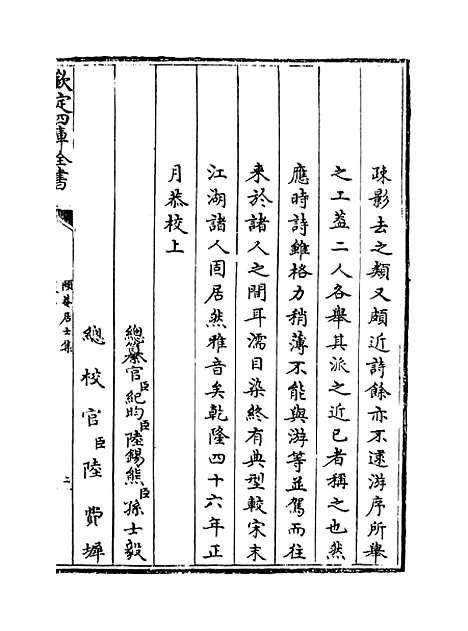 疎影去之類又頗近詩餘亦不逮游序所舉
之工葢二人各舉其派之近已者稱之也然
應時詩雖格力稍薄不能與游等並駕而往
來於諸人之間耳濡目染終有典型較宋末
江湖諸人固居然雅音矣乾隆四十六年正
月恭校上
總纂官臣紀昀臣陸錫熊臣孫士毅
總校官臣陸費墀
欽定四庫全書
頥菴居士集
二